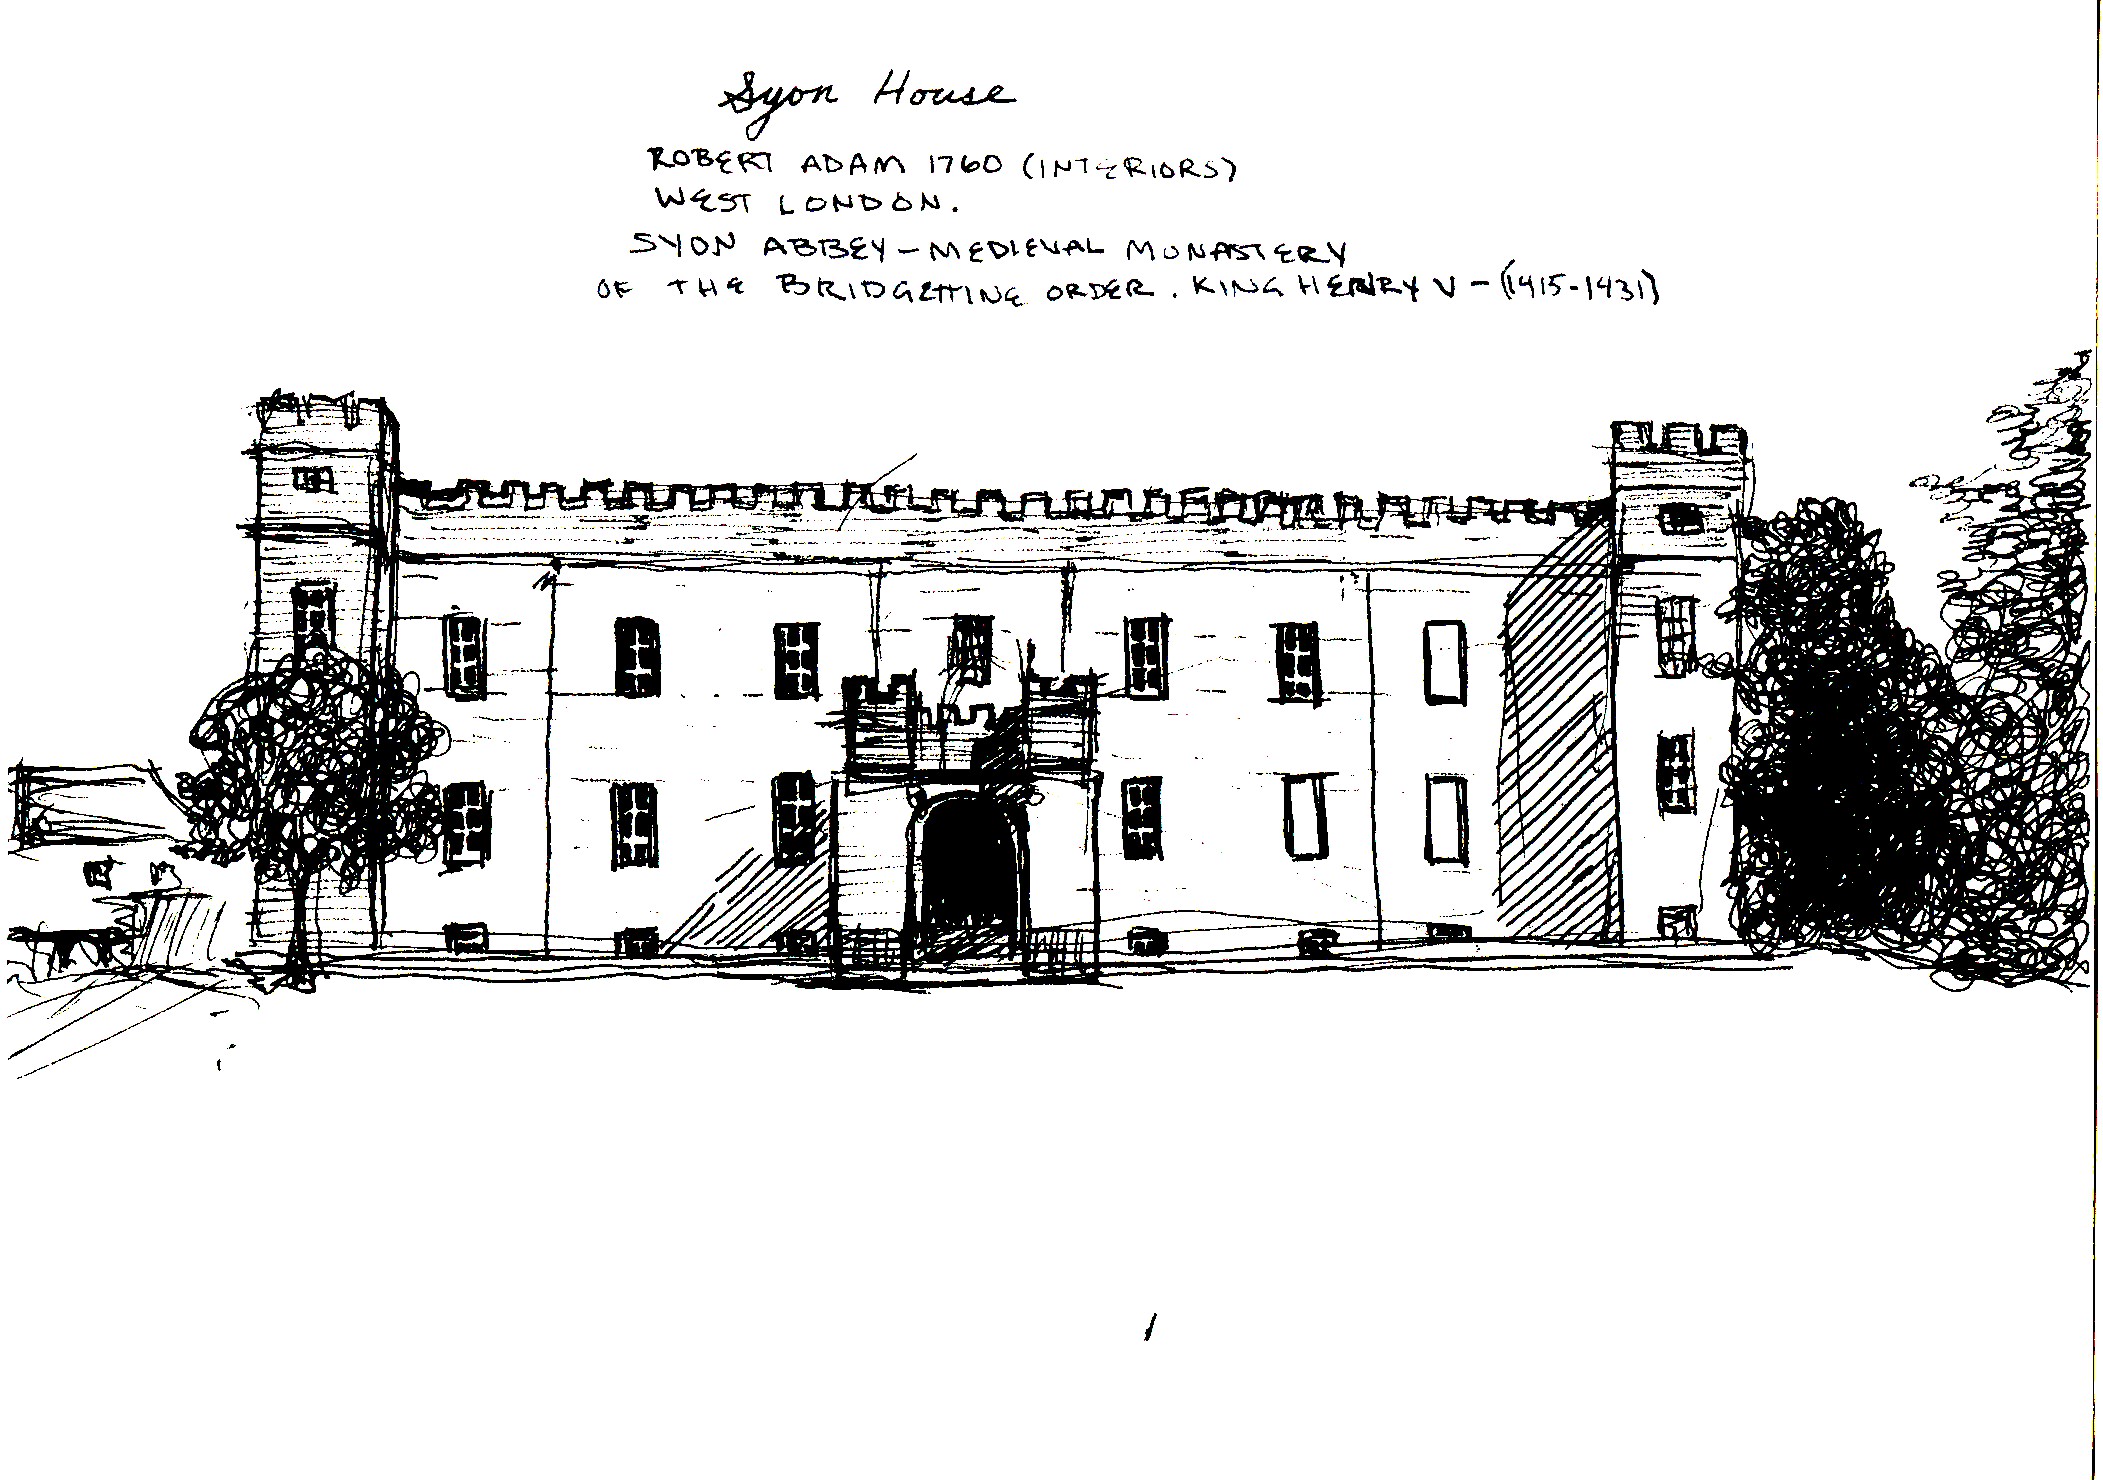 Syon House
ROBERT ADAM 1760 (INTERIORS)
WEST LONDON.
SYON ABBEY - MEDIEVAL MONASTERY
OF THE BRIDGETTINE ORDER. KING HENRY V - (1415-1431)